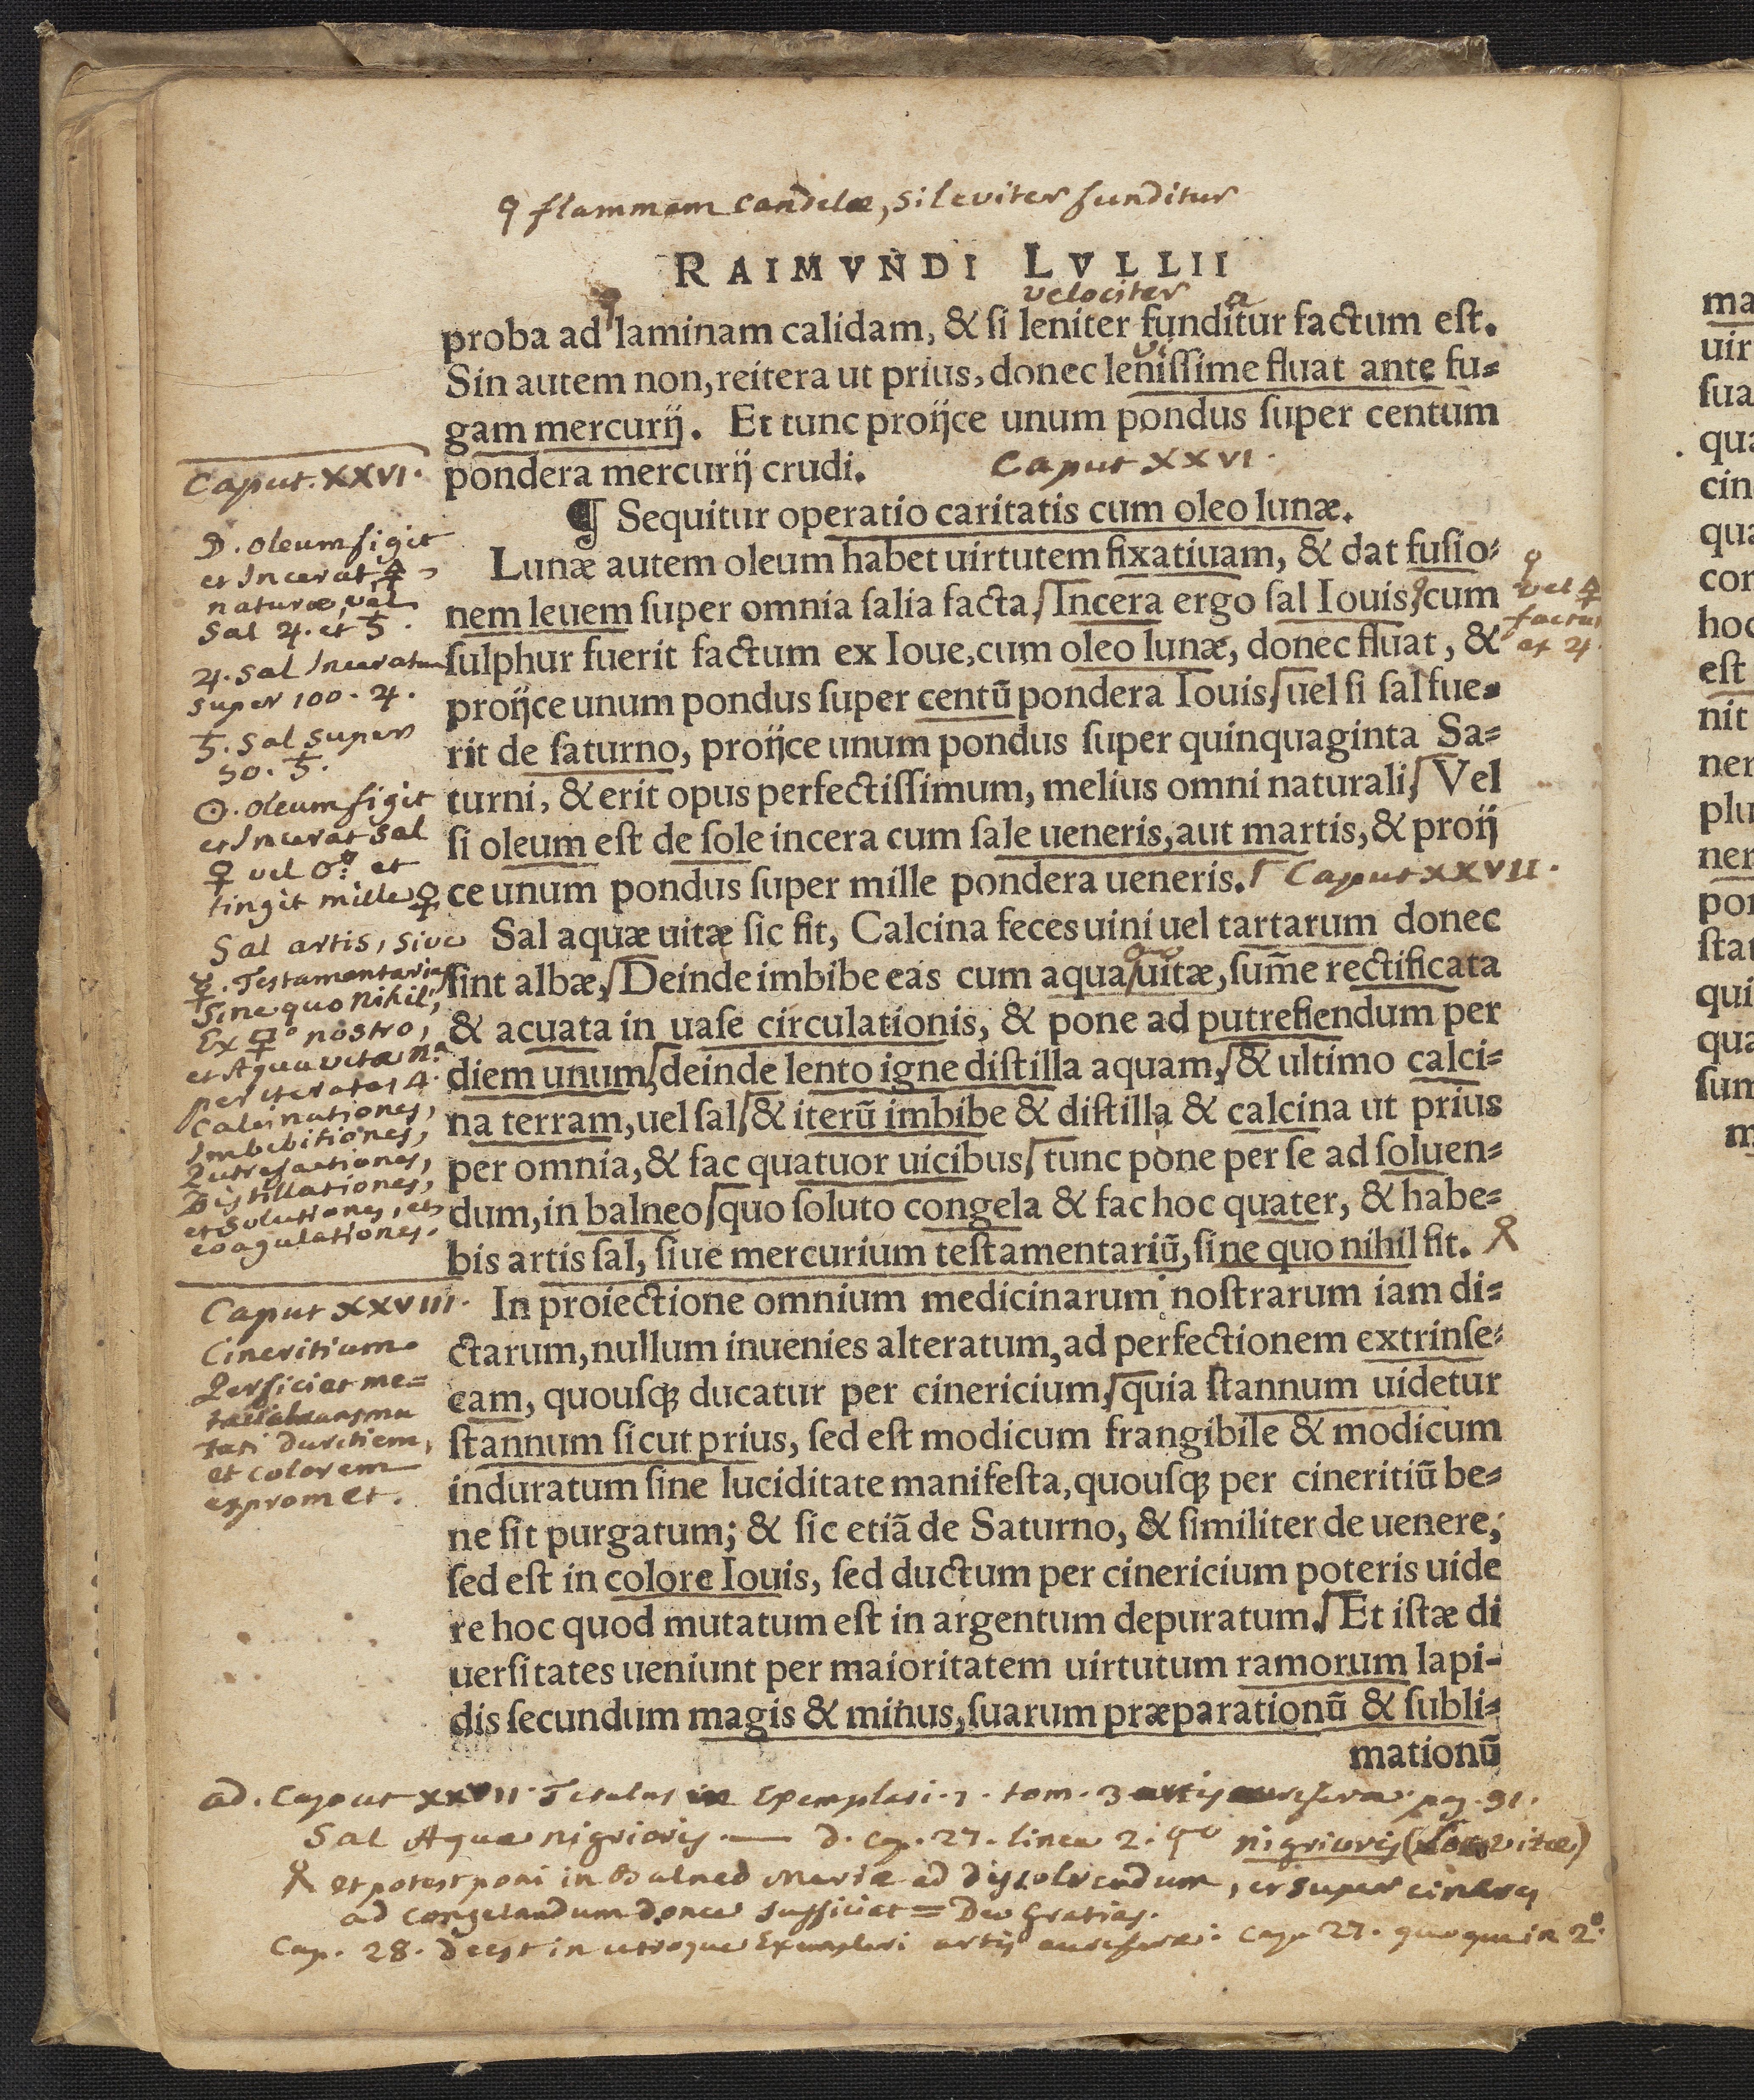 ♀ flammam candelæ, si leviter funditur
RAIMVNDI LVLLII
velociter a
proba ad laminam calidam, & ſi leniter funditur factum eſt.
vi
Sin autem non, reitera ut prius, donec leniſſime fluat ante fu=
gam mercurij. Et tunc proijce unum pondus ſuper centum
pondera mercurij crudi. Caput XXVI.
¶ Sequitur operatio caritatis cum oleo lunæ.
Lunæ autem oleum habet uirtutem fixatiuam, & dat fuſio=
nem leuem ſuper omnia ſalia facta, Incera ergo ſal Iouis, cum
ſulphur fuerit factum ex Ioue, cum oleo lunæ, donec fluat, &
proijce unum pondus ſuper centū pondera Iouis, uel ſi ſal fue=
rit de ſaturno, proijce unum pondus ſuper quinquaginta Sa=
turni, & erit opus perfectiſſimum, melius omni naturali, Vel
ſi oleum eſt de ſole incera cum ſale ueneris, aut martis, & proij
ce unum pondus ſuper mille pondera ueneris. Caput XXVII.
Sal aquæ uitæ ſic fit, Calcina feces uini uel tartarum donec
ſint albæ, Deinde imbibe eas cum aqua uitæ, ſum̄e rectificata
& acuata in uaſe circulationis, & pone ad putrefiendum per
diem unum, deinde lento igne diſtilla aquam, & ultimo calci=
na terram, uel ſal, & iterū imbibe & diſtilla & calcina ut prius
per omnia, & fac quatuor uicibus, tunc pone per ſe ad ſoluen=
dum, in balneo, quo ſoluto congela & fac hoc quater, & habe=
bis artis ſal, ſiue mercurium teſtamentariū, ſine quo nihil fit.
In proiectione omnium medicinarum noſtrarum iam di=
ctarum, nullum inuenies alteratum, ad perfectionem extrinſe=
cam, quouſq; ducatur per cinericium, quia ſtannum uidetur
ſtannum ſicut prius, ſed eſt modicum frangibile & modicum
induratum ſine luciditate manifeſta, quouſq; per cineritiū be=
ne ſit purgatum; & ſic etiā de Saturno, & ſimiliter de uenere,
ſed eſt in colore Iouis, ſed ductum per cinericium poteris uide
re hoc quod mutatum eſt in argentum depuratum. Et iſtæ di
uerſitates ueniunt per maioritatem uirtutum ramorum lapi=
dis ſecundum magis & minus, ſuarum præparationū & ſubli=
mationū
Caput. XXVI.
☽. oleum figit
et Incerat 🜍
naturæ, vel
Sal ♃. et ♄.
♃. Sal Inceratum
super 100. ♃.
♄. Sal super
50. ♄.
☉. oleum figit
et Incerat Sal
♀ vel ♂. et
tingit mille ♀
Sal artis, sive
☿. Testamentarius
Sine quo nihil,
nostro,
et Aqua vitæ
per iteratas 4.
Calcinationes,
Imbibitiones,
Putrefactiones,
Distillationes,
et Solutiones, et
coagulationes.
Caput XXVIII.
Cineritium
Perficiat me=
tasi duritiem,
et colorem
expromet.
vel 🜍
factus
ex ♃.
ad. Caput XXVII. Titulus in Exemplari. 1. tom. 3 artis auriferæ. pag. 91.
Sal Aquæ nigrioris. — D. Cap. 27. linea 2. nigrioris vitæ)
et potest poni in Balneo Mariæ ad dissolvendum, et super cineres
ad congelandum donec sufficiat = Deo Gratias.
Cap. 28. deest in utroque Exemplari artis auriferæ. Cap. 27. quoque in 2º.
ma
uir
ſua
qua
cin
qua
con
hoc
eſt
nit
ner
plu
ner
pon
ſtan
qui
qua
ſum
m